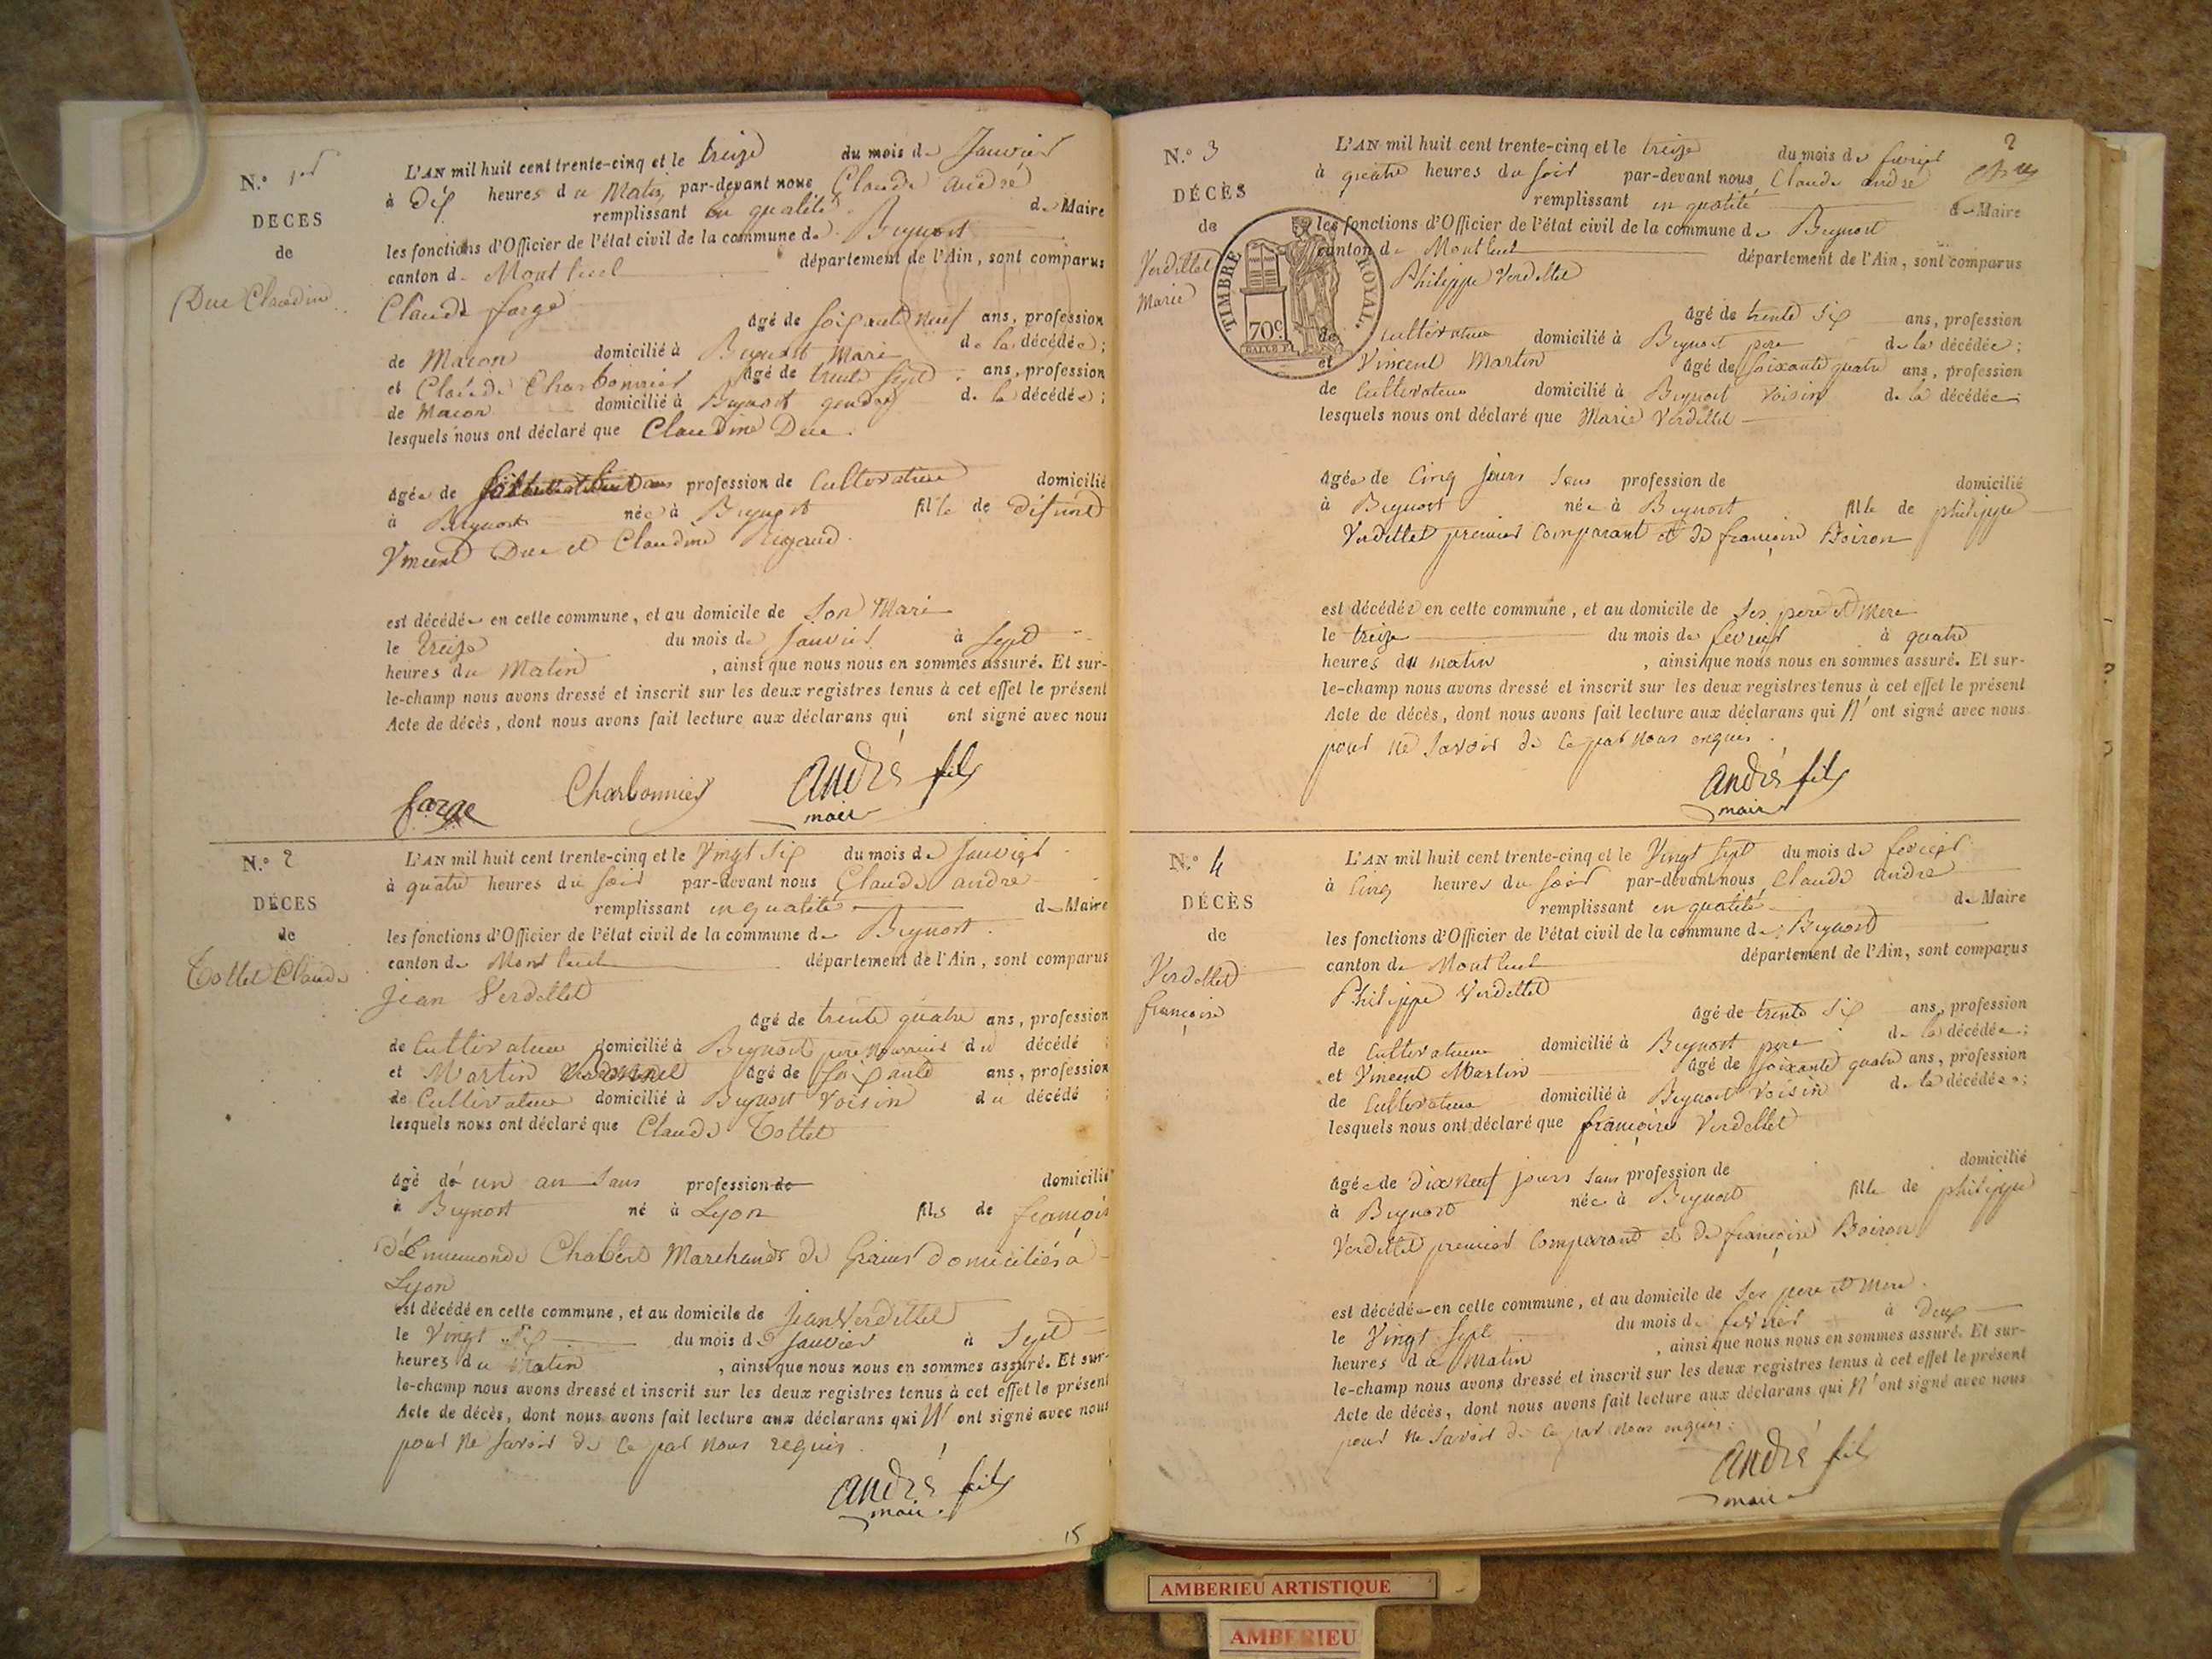 N.° 1er
DECES
de
Duc Claudine
L'AN mil huit cent trente-cinq et le treize du mois de Janvier
à Dix heures du Matin par-devant nous Claude andré
remplissant en qualité de Maire
les fonctions d'Officier de l'état civil de la commune de Beynost
canton de Montluel département de l'Ain, sont comparus
Claude farge
âgé de soixante neuf ans, profession
de Macon domicilié à Beynost Mari de la décédée;
et Claude Charbonnier âgé de trente sept ans, profession
de Macon domicilié à Beynost gendre de la décédée;
lesquels nous ont déclaré que Claudine Duc.
âgée de ans profession de Cultivatrice domicilié
à Beynost née à Beynost fille de défunt
Vincent Duc et Claudine
est décédée en cette commune, et au domicile de Son Mari
le treize du mois de Janvier à Sept
heures du Matin, ainsi que nous nous en sommes assuré. Et sur-
le-champ nous avons dressé et inscrit sur les deux registres tenus à cet effet le présent
Acte de décès, dont nous avons fait lecture aux déclarans qui ont signé avec nous
farge Charbonnier André fils
maire
N.° 2
DÉCES
de
Tottet Claude
L'AN mil huit cent trente-cinq et le Vingt Six du mois de Janvier
à quatre heures du soir par-devant nous Claude andré
remplissant en qualité de Maire
les fonctions d'Officier de l'état civil de la commune de Beynost.
canton de Montluel département de l'Ain, sont comparus
Jean Verdellet
âgé de trente quatre ans, profession
de Cultivateur domicilié à Beynost pere nourricier du décédé
et Martin âgé de soixante ans, profession
de Cultivateur domicilié à Beynost Voisin du décédé;
lesquels nous ont déclaré que Claude Tottet
âgé de un an Sans profession de domicilié
à Beynost né à Lyon fils de françois
Chabert Marchands de Grains domiciliés à
Lyon
est décédé en cette commune, et au domicile de Jean Verdellet
le Vingt Six du mois de Janvier à Sept
heures du Matin, ainsi que nous nous en sommes assuré. Et sur-
le-champ nous avons dressé et inscrit sur les deux registres tenus à cet effet le présent
Acte de décès, dont nous avons fait lecture aux déclarans qui N' ont signé avec nous
pour ne savoir de ce par nous requis.
André fils
maire
15
2
N.° 3
DÉCÈS
de
Verdellet
Marie
TIMBRE ROYAL.
70c
L'AN mil huit cent trente-cinq et le treize du mois de fevrier
à quatre heures du soir par-devant nous Claude andré
remplissant en qualité de Maire
les fonctions d'Officier de l'état civil de la commune de Beynost
canton de Montluel département de l'Ain, sont comparus
Philippe Verdellet
âgé de trente Six ans, profession
de cultivateur domicilié à Beynost pere de la décédée;
et Vincent Martin âgé de soixante quatre ans, profession
de Cultivateur domicilié à Beynost Voisin de la décédée;
lesquels nous ont déclaré que Marie Verdellet
âgée de Cinq jours Sans profession de domicilié
à Beynost née à Beynost fille de philippe
Verdellet premier Comparant et de françoise Boiron
est décédée en cette commune, et au domicile de Ses pere et Mere
le treize du mois de fevrier à quatre
heures du matin, ainsi que nous nous en sommes assuré. Et sur-
le-champ nous avons dressé et inscrit sur les deux registres tenus à cet effet le présent
Acte de décès, dont nous avons fait lecture aux déclarans qui N' ont signé avec nous
pour ne Savoir de ce par nous enquis.
André fils
maire
N.° 4
DÉCÈS
de
Verdellet
françoise
L'AN mil huit cent trente-cinq et le Vingt Sept du mois de fevrier
à Cinq heures du soir par-devant nous Claude andré
remplissant en qualité de Maire
les fonctions d'Officier de l'état civil de la commune de Beynost
canton de Montluel département de l'Ain, sont comparus
Philippe Verdellet
âgé de trente Six ans, profession
de Cultivateur domicilié à Beynost pere de la décédée;
et Vincent Martin âgé de soixante quatre ans, profession
de Cultivateur domicilié à Beynost Voisin de la décédée;
lesquels nous ont déclaré que françoise Verdellet
âgée de Dix neuf jours Sans profession de domicilié
à Beynost née à Beynost fille de philippe
Verdellet premier Comparant et de françoise Boiron
est décédée en cette commune, et au domicile de Ses pere et Mere.
le Vingt Sept du mois de fevrier à Deux
heures du Matin, ainsi que nous nous en sommes assuré. Et sur-
le-champ nous avons dressé et inscrit sur les deux registres tenus à cet effet le présent
Acte de décès, dont nous avons fait lecture aux déclarans qui N' ont signé avec nous
pour ne Savoir de ce par nous enquis.
André fils
maire
AMBERIEU ARTISTIQUE
AMBERIEU